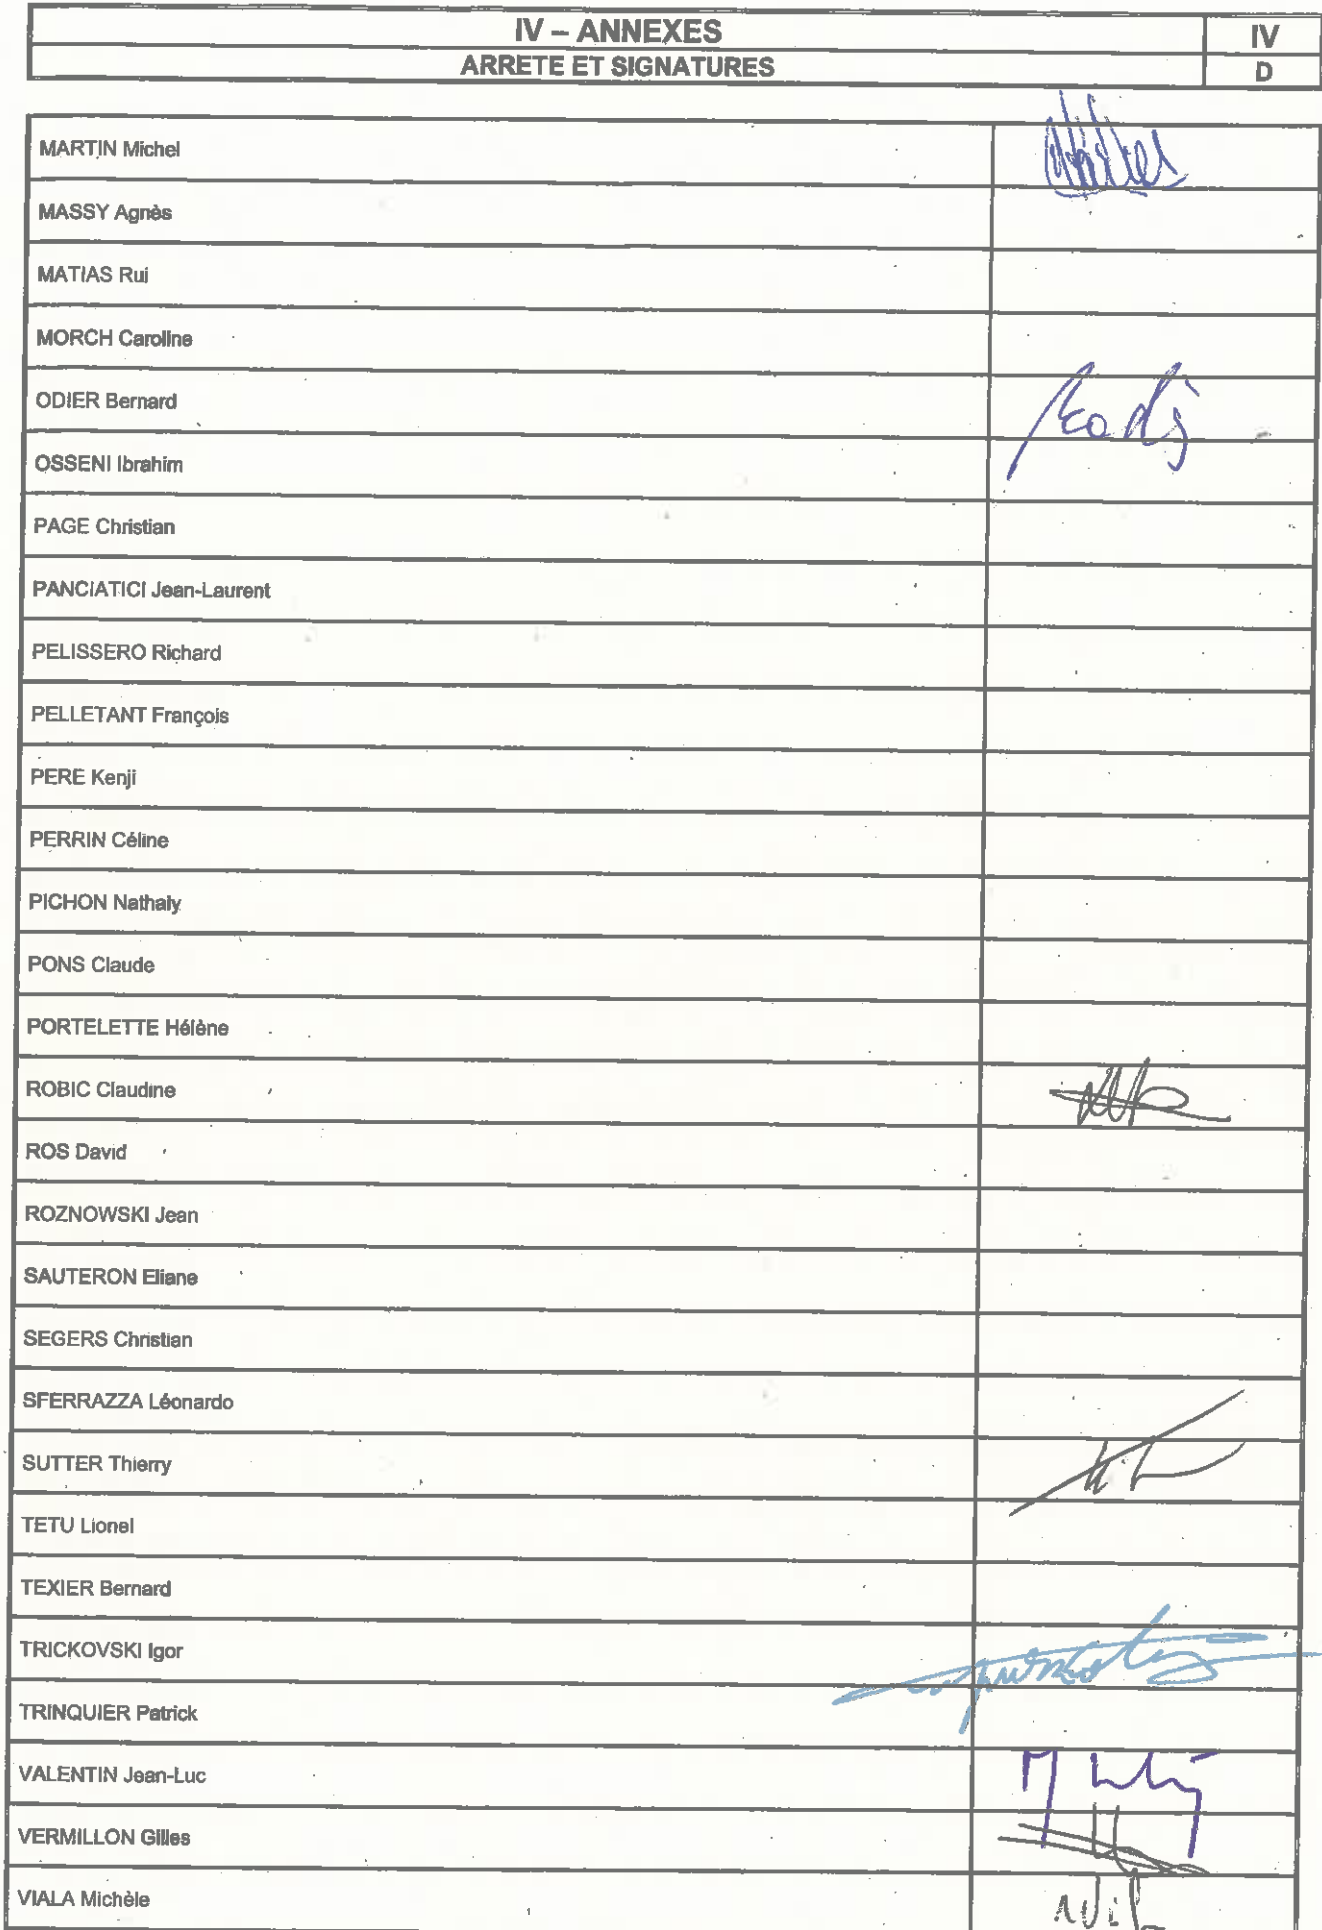 IV – ANNEXES IV
ARRETE ET SIGNATURES D
MARTIN Michel
MASSY Agnès
MATIAS Rui
MORCH Caroline
ODIER Bernard
OSSENI Ibrahim
PAGE Christian
PANCIATICI Jean-Laurent
PELISSERO Richard
PELLETANT François
PERE Kenji
PERRIN Céline
PICHON Nathaly
PONS Claude
PORTELETTE Hélène
ROBIC Claudine
ROS David
ROZNOWSKI Jean
SAUTERON Eliane
SEGERS Christian
SFERRAZZA Léonardo
SUTTER Thierry
TETU Lionel
TEXIER Bernard
TRICKOVSKI Igor
TRINQUIER Patrick
VALENTIN Jean-Luc
VERMILLON Gilles
VIALA Michèle